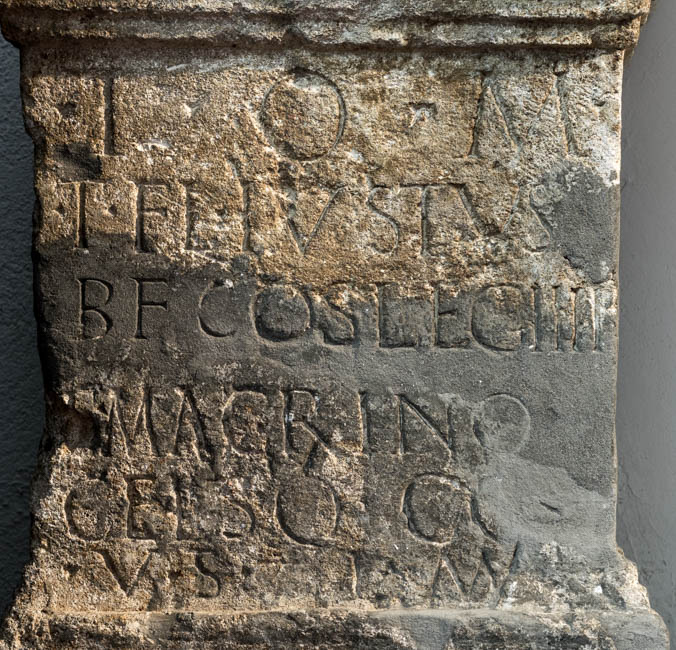 ·I· O · M·
·T·FL·IVSTVS
BF COSLEGIIII
MACRINO
CELSO CO
V·S· L·M